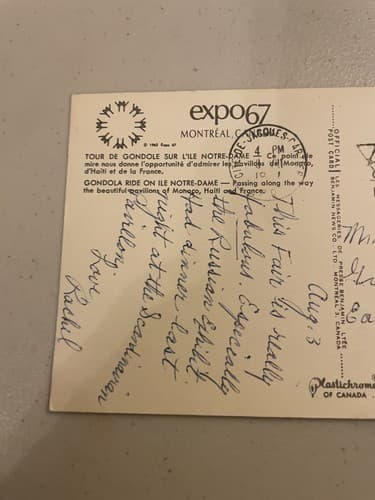 expo67
MONTRÉAL, C
© 1963 Expo 67
TOUR DE GONDOLE SUR L'ILE NOTRE-DAME — Ce point de
mire nous donne l'opportunité d'admirer les pavillons de Monaco,
d'Haïti et de la France.
GONDOLA RIDE ON ILE NOTRE-DAME — Passing along the way
the beautiful pavilions of Monaco, Haiti and France.
JACQUES-CAR
4 PM
Aug. 3
This Fair is really
fabulous. Especially
the Russian Exhibit
Had dinner last
night at the Scandinavian
Pavillon.
Love
Rachel
OFFICIAL
POST CARD
LES MESSAGERIES DE PRESSE BENJAMIN LTÉE
BENJAMIN NEWS CO. LTD. MONTREAL 3, CANADA
Plastichrome
OF CANADA